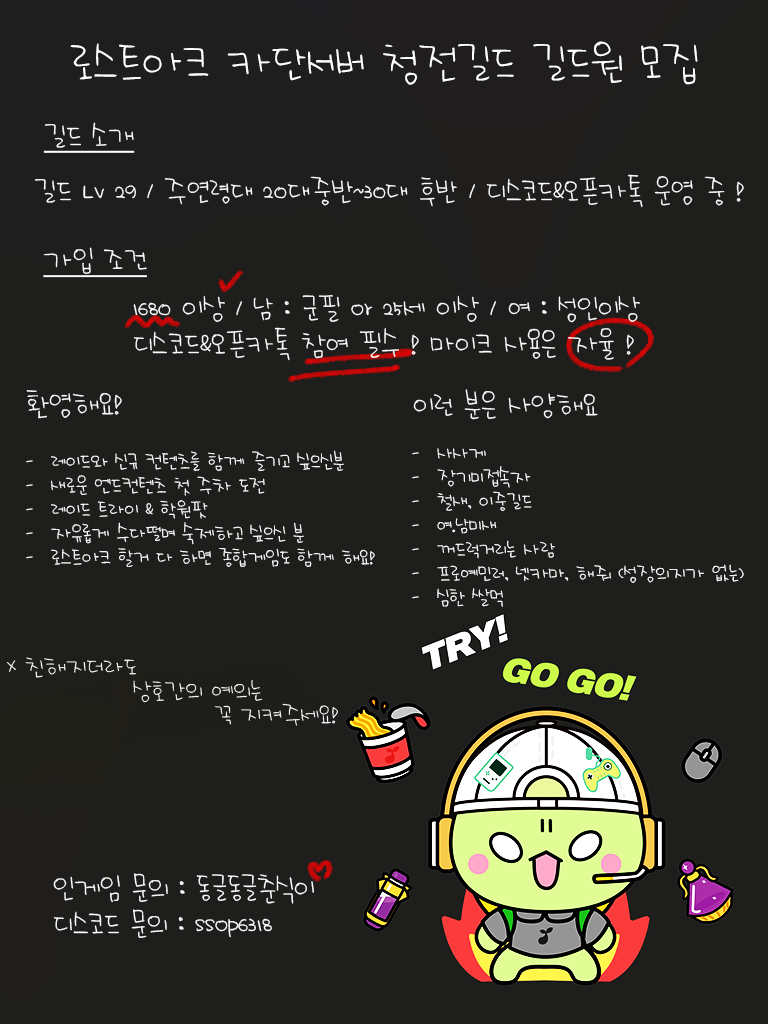 로스트아크 카단서버 청전길드 길드원 모집
길드 소개
길드 LV 29 / 주연령대 20대중반~30대 후반 / 디스코드&오픈카톡 운영 중 !
가입 조건
1680 이상 / 남 : 군필 or 25세 이상 / 여 : 성인이상
디스코드&오픈카톡 참여 필수 ! 마이크 사용은 자율 !
환영해요!
- 레이드와 신규 컨텐츠를 함께 즐기고 싶으신분
- 새로운 엔드컨텐츠 첫 주차 도전
- 레이드 트라이 & 학원팟
- 자유롭게 수다떨며 숙제하고 싶으신 분
- 로스트아크 할거 다 하면 종합게임도 함께 해요!
이런 분은 사양해요
- 사사게
- 장기미접속자
- 철새, 이중길드
- 여,남미새
- 꺼드럭거리는 사람
- 프로예민러, 넷카마, 해줘 (성장의지가 없는)
- 심한 쌀먹
x 친해지더라도
상호간의 예의는
꼭 지켜주세요!
TRY!
GO GO!
인게임 문의 : 동글동글춘식이
디스코드 문의 : ssop6318